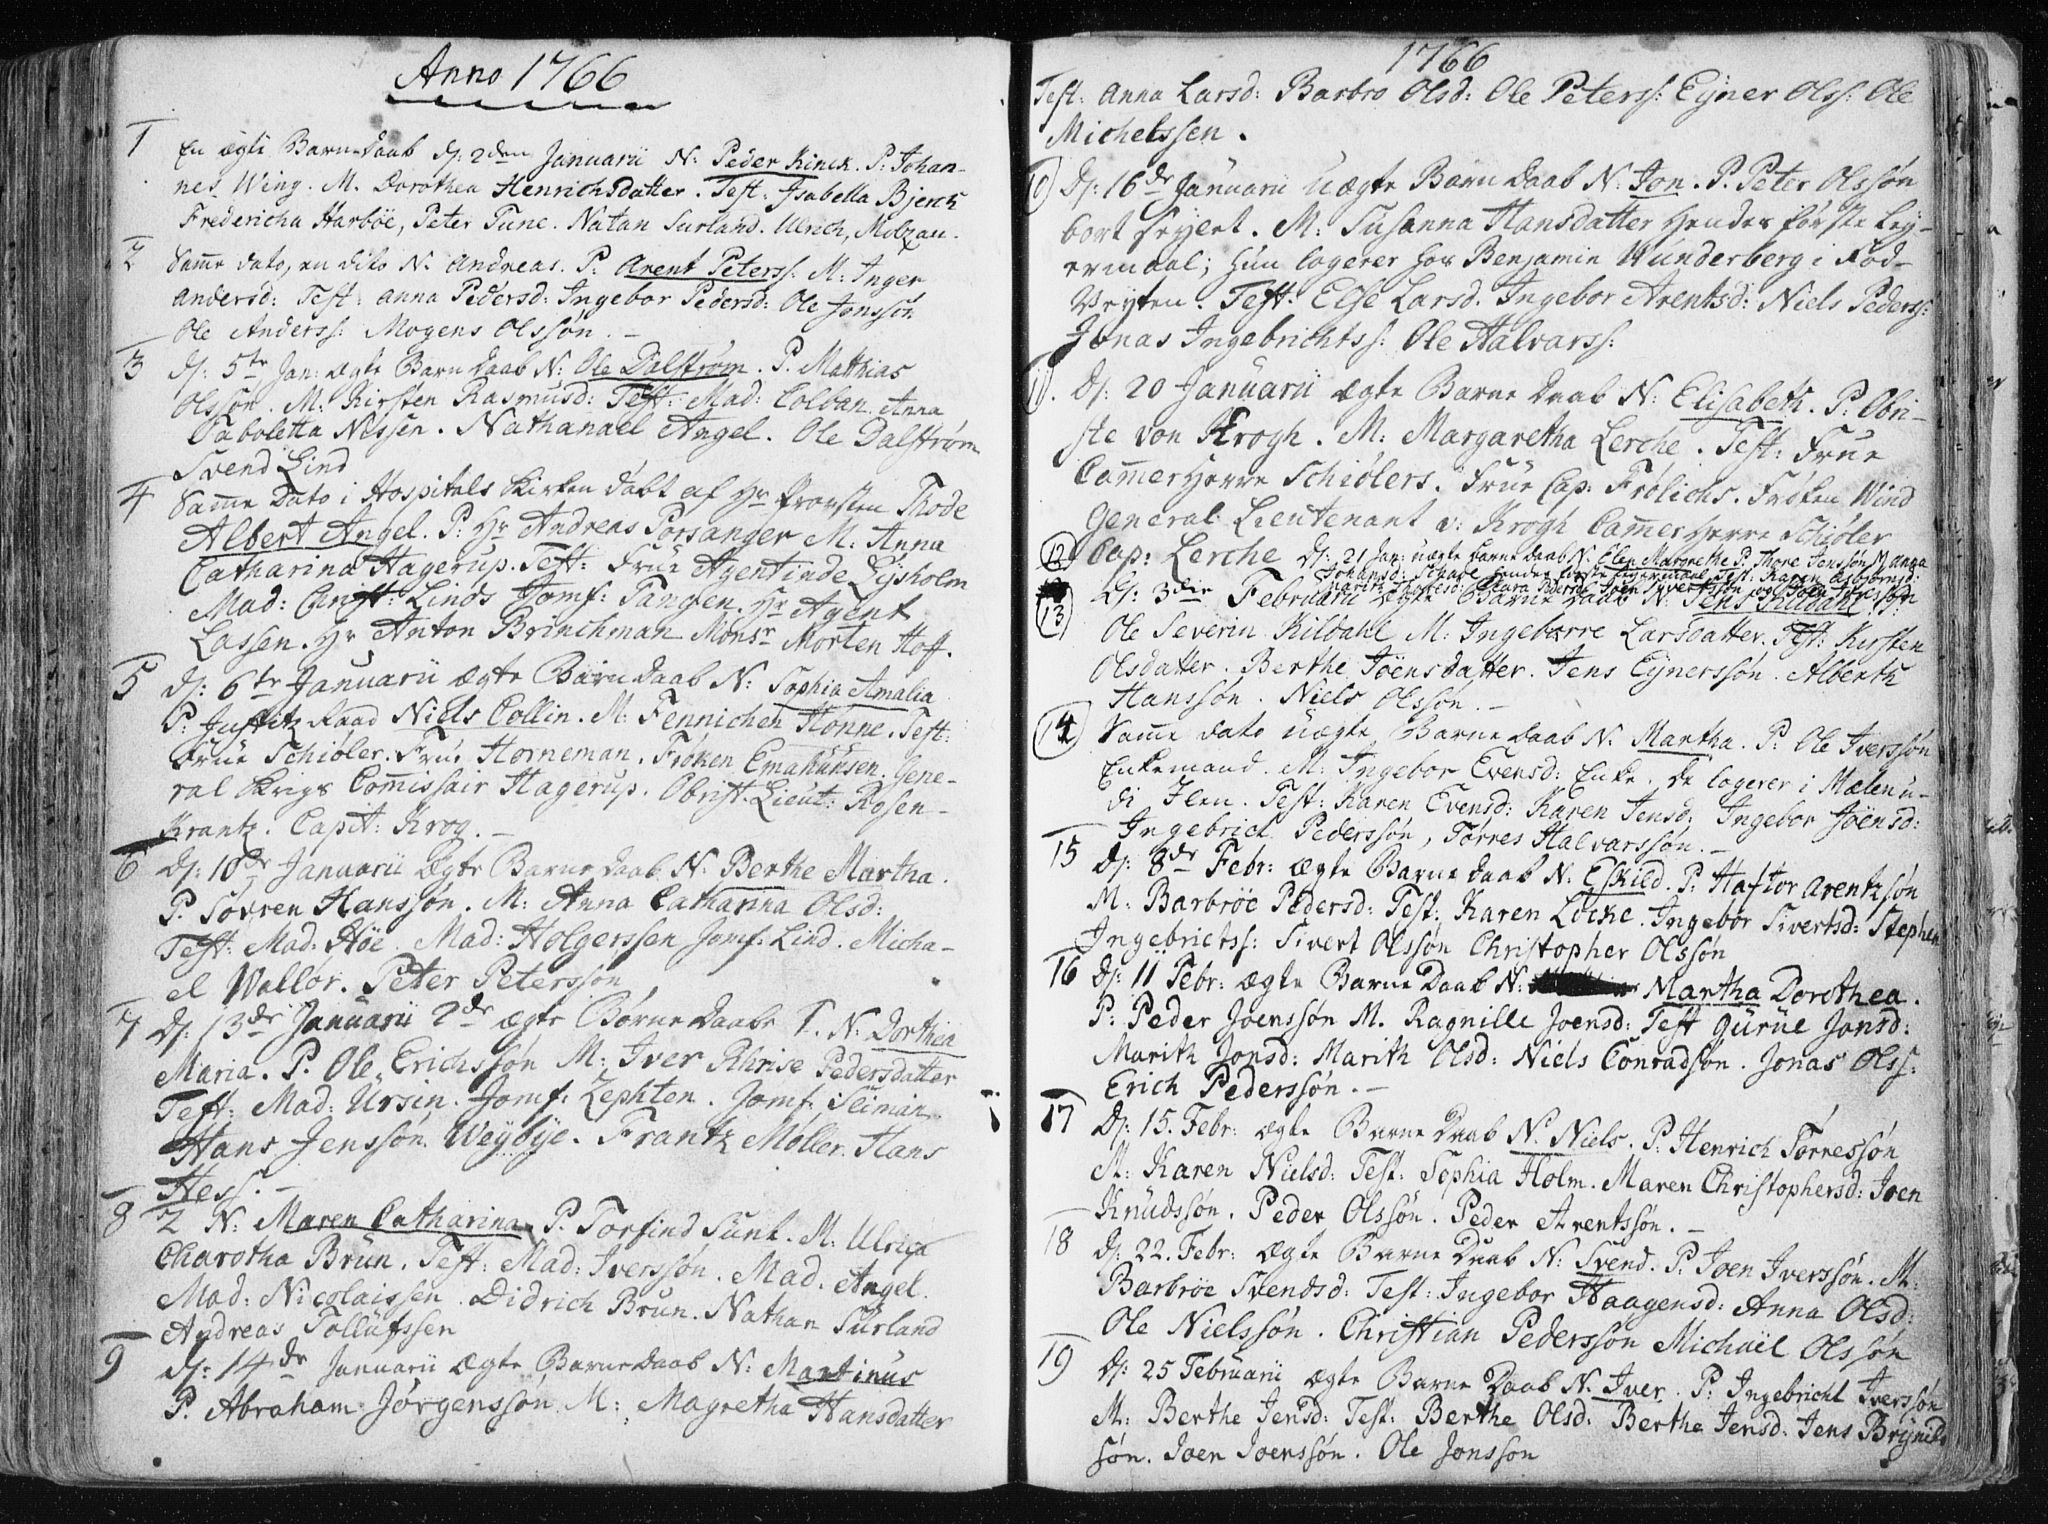 Anno 1766
1 En ægte Barne Daab d: 2den Januarii N: Peder Kinck. P: Johan-
nes Wing. M. Dorothea Henrichsdatter. Test: Isabella Bjerck
Fredericha Harböe, Peter Tune. Natan Surland. Ulrich, Moltzau.
2 Samme dato, en dito N. Andreas. P: Arent Peterss: M: Inger
Andersd: Test: Anna Pedersd: Ingebor Pedersd: Ole Jonssøn
Ole Anderss: Mogens Olssøn. —
3 d: 5te Jan: ægte Barn Daab N: Ole Dalstrøm. P. Mathias
Olssøn. M: Kirsten Rasmusd: Test: Mad: Colban Anna
Taboletta Nissen. Nathanael Angel. Ole Dalstrøm
Svend Lind
4 Samme Dato i Hospitals Kirken døbt af Hr Provsten Thode
Albert Angel. P: Hr Andreas Porsanger M: Anna
Catharina Hagerup. Test: Frue Agentinde Lysholm
Mad: Linds Jomf: Tangen. Hr Agent
Lassen. Hr Anton Brinchman Monsr Morten Hoff.
5 d: 6te Januarii ægte Barn Daab N: Sophia Amalia
P: Justitz Raad Niels Collin. M: Fennichen Hønne. Test:
Frue Schiøler. Frue Horneman. Frøken Emahusen. Gene-
ral Krigs Commissair Hagerup. Obrist: Lieut: Rosen-
Krantz. Capit: Krog. —
6 d: 10de Januarii Ægte Barne Daab N: Berthe Martha.
P. Søvren Hanssøn. M: Anna Catharina Olsd:
Test: Mad: Høe. Mad: Holgerssen, Jomf: Lind. Micha-
el Wallor. Peter Peterssøn
7 d: 13de Januarii 2de ægte Børne Daabe 1. N: Dorthea
Maria. P. Ole Erichssøn M: Iver Khrise Pedersdatter
Test: Mad: Ursin. Jomf: Zephten. Jomf: Sliman
Hans Jenssøn Weybye. Frantz Møller. Hans
Hess. —
8 2 N: Maren Catharina P. Torfind Sunt. M: Ulrica
Charotha Brun. Test: Mad: Iverssøn. Mad. Angel.
Mad: Nicolaissen. Didrich Brun. Nathan Surland
Andreas Tollufssen
9 d: 14de Januarii Ægte Barne Daab N: Martinus
P. Abraham Jørgenssøn M: Magretha Hansdatter
1766
Test: Anna Larsd: Barbro Olsd: Ole Peterss: Eyner Olss: Ole
Michelssen.
10 d: 16de Januarii Uægte Barn Daab N: Jon. P. Peter Olssøn
bort seylet. M: Susanna Hansdatter hendes første Ley-
ermaal; hun logerer hos Benjamin Wunderberg i Fød-
Veyten. Test: Else Larsd. Ingebor Arentsd: Niels Pederss:
Jonas Ingebrichtss: Ole Halvarss:
11. d: 20 Januarii ægte Barne Daab N: Elisabeth. P: Obri-
ste von Krogh. M: Margaretha Lerche. Test: Frue
CammerHerre Schiølers. Frue Cap: Frølichs. Frøken Wind
General Lieutenant v: Krogh CammerHerre Schiøler
Cap: Lerche
12 d: 21 Jan: uægte Barne Daab N. Elen Margrethe P. Thore Jenssøn M Anna
Johansd: hendes første Leyermaal Test: Karen Asbjørnsd:
13 d: 3die Februarii ægte Barne Daab N: Jens Kildahl P:
Ole Severin Kildahl M: Ingebørre Larsdatter. Test: Kirsten
Olsdatter. Berthe Jöensdatter. Jens Eynerssøn. Alberth
Hanssøn. Niels Olssøn. —
14 Samme dato uægte Barne Daab N. Martha. P: Ole Iverssøn
Enkemand. M: Ingebor Evensd: Enke. de logerer i Mælen u-
di Ilen. Test: Karen Evensd: Karen Jensd: Ingebor Jöensd:
Ingebrict Pederssøn, Torres Halvarssøn. —
15 d: 8de Febr: ægte Barne Daab N: Eskild. P: Haftor Arentzsøn
M: Barbröe Pedersd: Test: Karen Locke. Ingebor Sivertsd: Stephen
Ingebrictss: Sivert Olssøn Christopher Olssøn
16 d: 11 Febr: ægte Barne Daab N: Martha Dorothea.
P: Peder Joenssøn M. Ragnille Joensd: Test Gurue Jonsd:
Marith Jonsd: Marith Olsd: Niels Conradsøn. Jonas Olss:
Erich Pederssøn. —
17 d: 15. Febr: ægte Barne Daab N. Niels. P: Henrich Torressøn
M: Karen Nielsd: Test: Sophia Holm. Maren Christophersd: Joen
Knudssøn. Peder Olssøn. Peder Arentssøn. —
18 d: 22. Febr: Ægte Barne Daab N: Svend. P: Joen Iverssøn. M:
Barbröe Svendsd: Test: Ingebor Haagensd: Anna Olsd:
Ole Nielssøn. Christian Pederssøn Michael Olssøn
19 d: 25 Februarii ægte Barne Daab N: Iver. P: Ingebricht Iverssøn
M: Berthe Jensd: Test: Berthe Olsd: Berthe Jensd: Jens Brynild
søn. Joen Joenssøn. Ole Jonsson